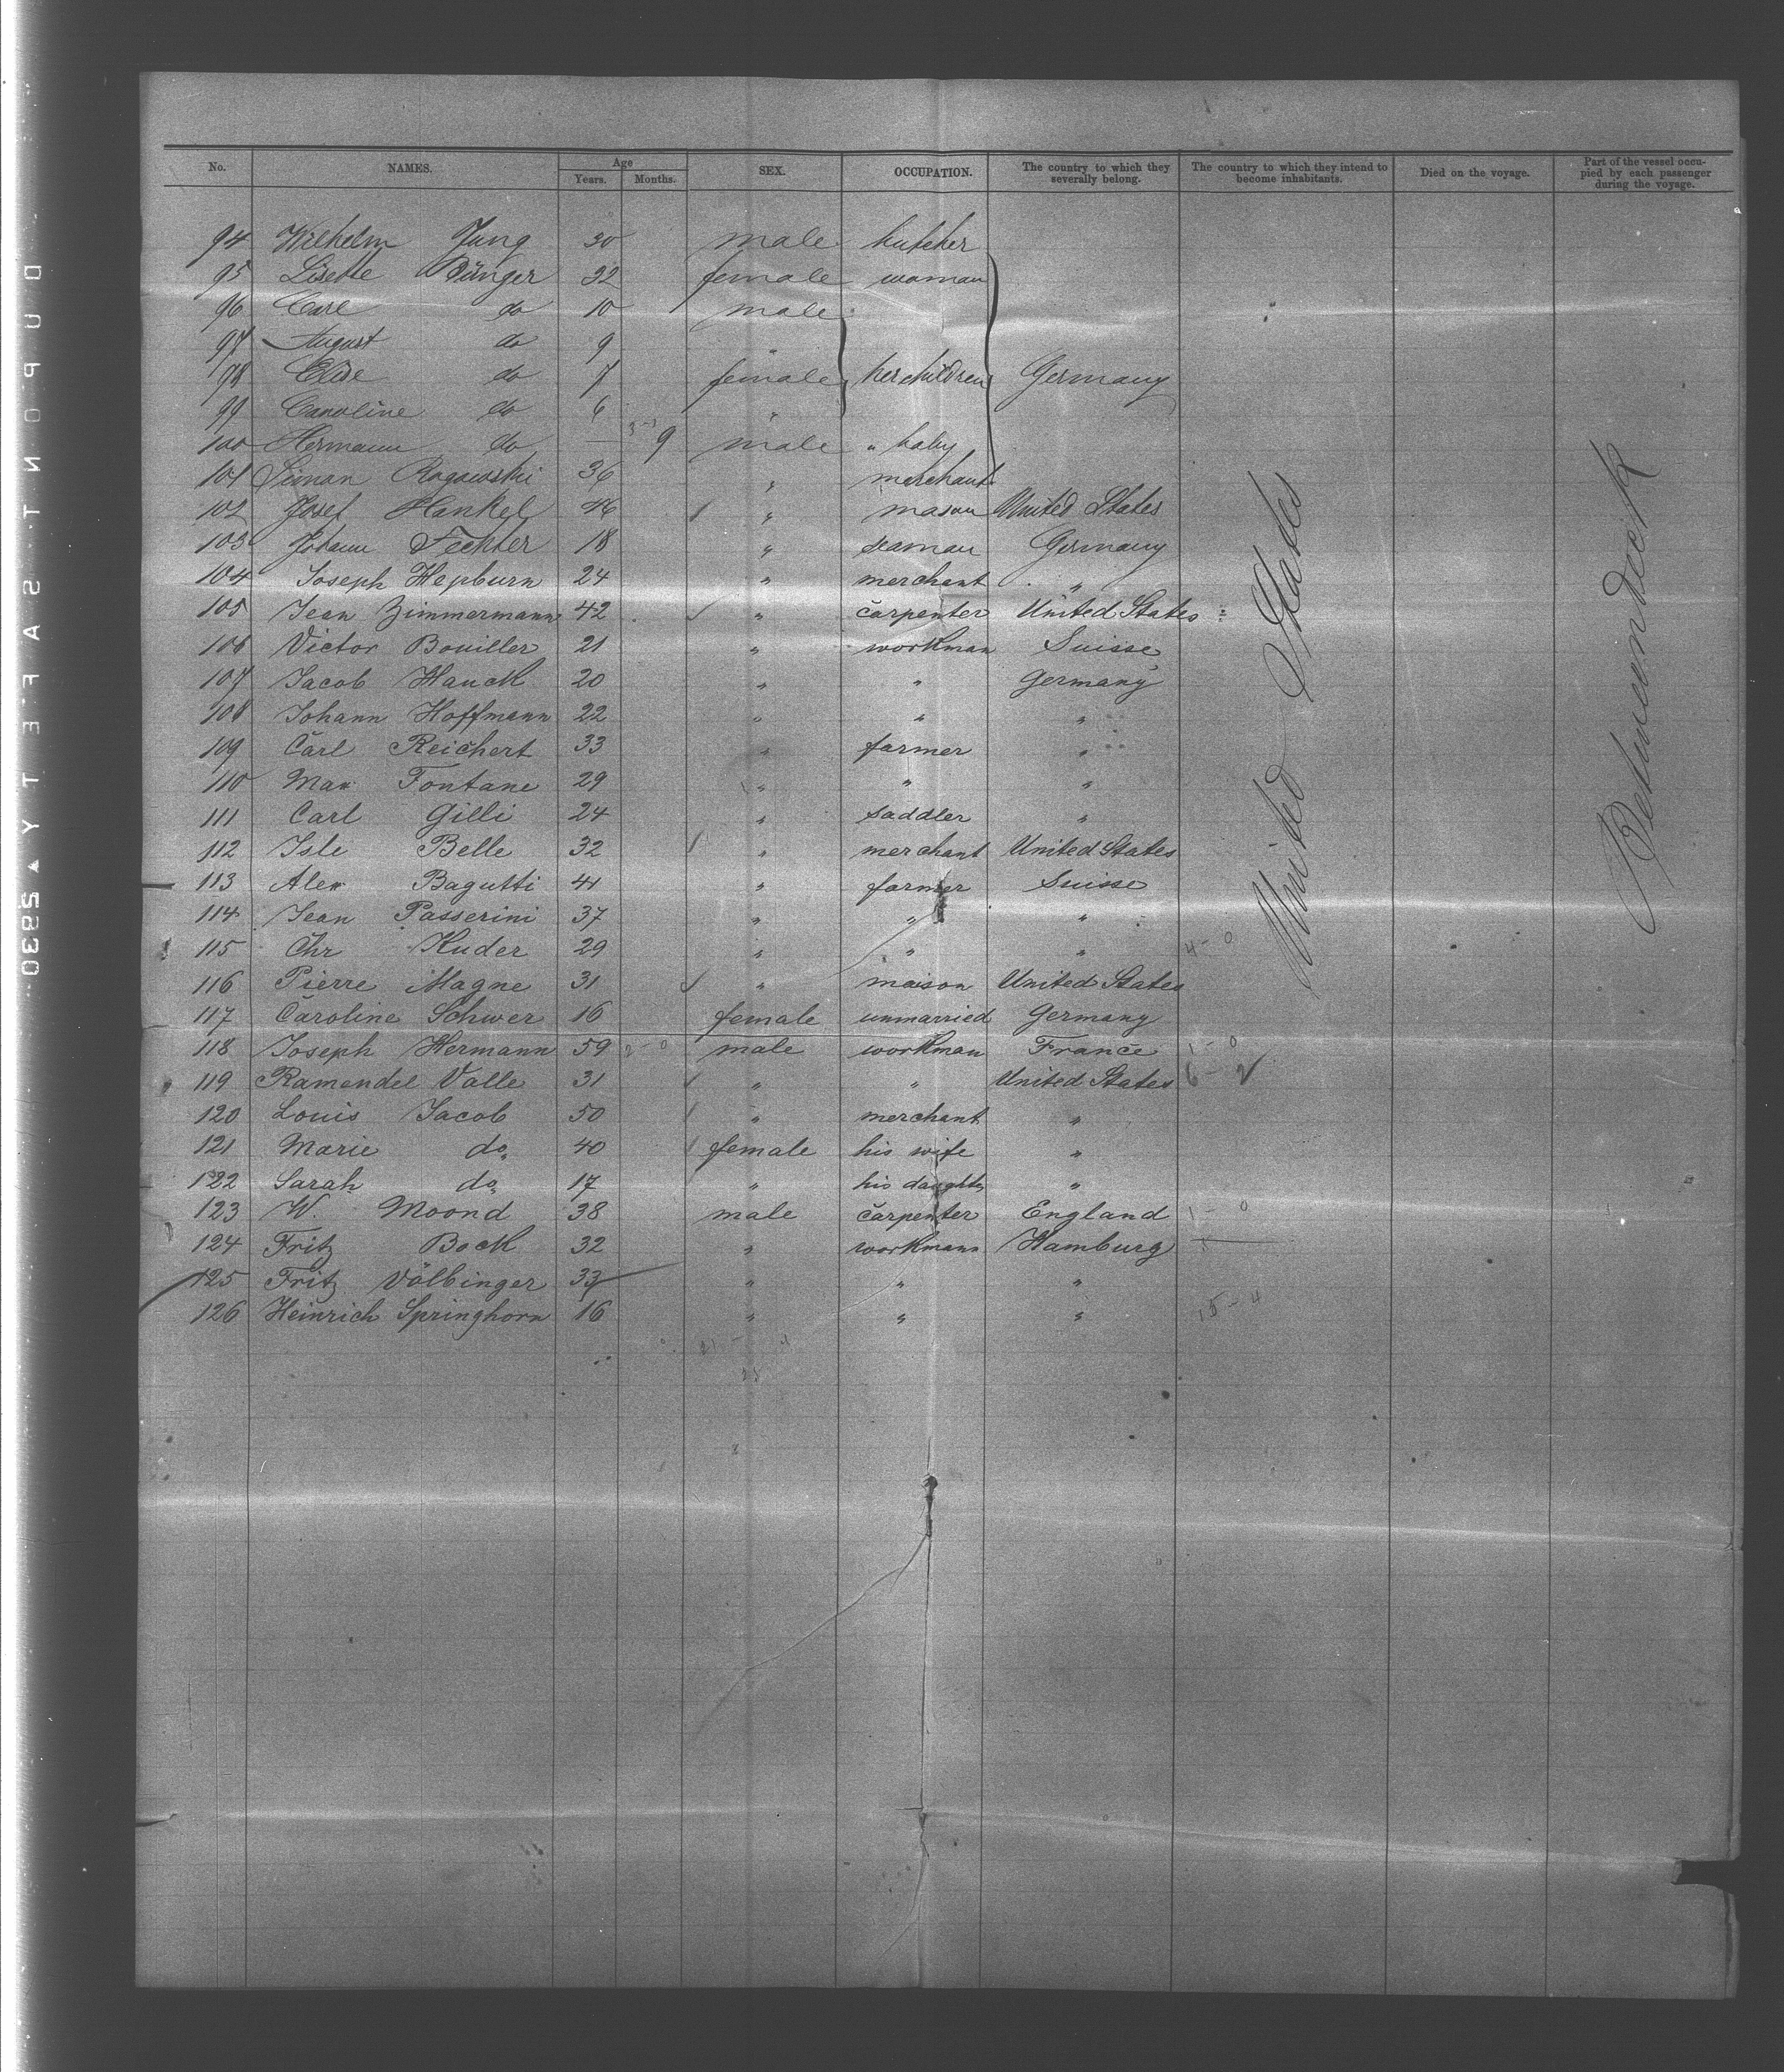 No. NAMES. Age Years. Months. SEX. OCCUPATION. The country to which they severally belong. The country to which they intend to become inhabitants. Died on the voyage. Part of the vessel occupied by each passenger during the voyage.
94 Wilhelm Jung 20 male butcher
95 Lisette Bünger 32 female woman
96 Carl do 10 male
97 August do 9 "
98 Elise do 7 female her children Germany
99 Caroline do 6 "
100 Hermann do — 9 male " baby
101 Simon Rogowski 36 " merchant
102 Josef Hankel 46 " mason United States
103 Johann Fechter 18 " seaman Germany
104 Joseph Hepburn 24 " merchant "
105 Jean Zimmermann 42 " carpenter United States
106 Victor Bouiller 21 " workman Suisse
107 Jacob Hauck 20 " " Germany
108 Johann Hoffmann 22 " " "
109 Carl Reichert 33 " farmer "
110 Max Fontane 29 " " "
111 Carl Gilli 24 " saddler "
112 Isle Belle 32 " merchant United States
113 Alex Bagutti 41 " farmer Suisse
114 Jean Passerini 37 " " "
115 Chr Kuder 29 " " " 4-0
116 Pierre Magne 31 " maison United States
117 Caroline Schwer 16 female unmarried Germany
118 Joseph Hermann 59 2-0 male workman France 1-0
119 Ramendel Valle 31 " " United States 6-2
120 Louis Jacob 50 " merchant "
121 Marie do 40 female his wife "
122 Sarah do 17 " his daughter "
123 W. Moond 38 male carpenter England 1-0
124 Fritz Bock 32 " workmann Hamburg
125 Fritz Völbinger 33 " " "
126 Heinrich Springhorn 16 " " " 15-4
United States
Betweendeck
DUPONT SAFETY 5830